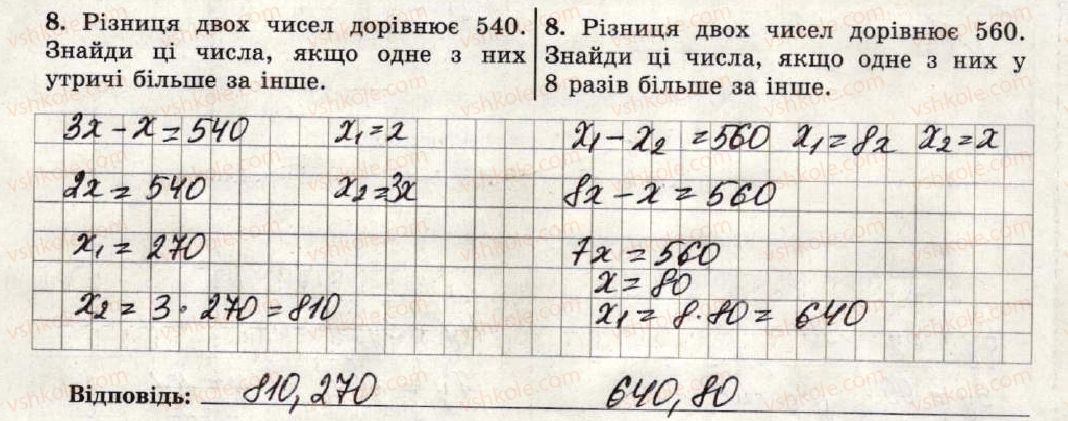 8. Різниця двох чисел дорівнює 540.
Знайди ці числа, якщо одне з них
утричі більше за інше.
8. Різниця двох чисел дорівнює 560.
Знайди ці числа, якщо одне з них у
8 разів більше за інше.
3x - x = 540 x₁ = x
2x = 540 x₂ = 3x
x₁ = 270
x₂ = 3 · 270 = 810
x₁ - x₂ = 560 x₁ = 8x x₂ = x
8x - x = 560
7x = 560
x = 80
x₁ = 8 · 80 = 640
Відповідь: 810, 270 640, 80